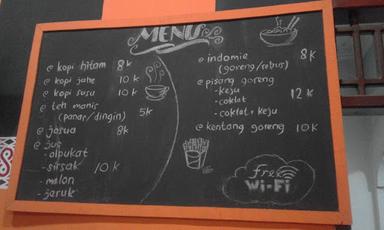 MENUS
@ kopi hitam 8k
@ kopi jahe 10k
@ kopi susu 10k
@ teh manis
(panas/dingin) 5k
@ josua 8k
@ jus
- alpukat
- sirsak 10k
- melon
- jeruk
@ indomie 8k
(goreng/rebus)
@ pisang goreng
- keju
- coklat 12k
- coklat, keju
@ kentang goreng 10k
free
Wi-Fi